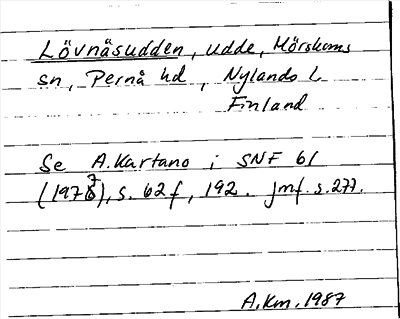 Lövnäsudden, udde, Mörskoms
sn, Pernå hd, Nylands l.
Finland
Se A. Kartano i SNF 61
(1977), s. 62 f, 192. Jmf. s. 277.
A. Km. 1987